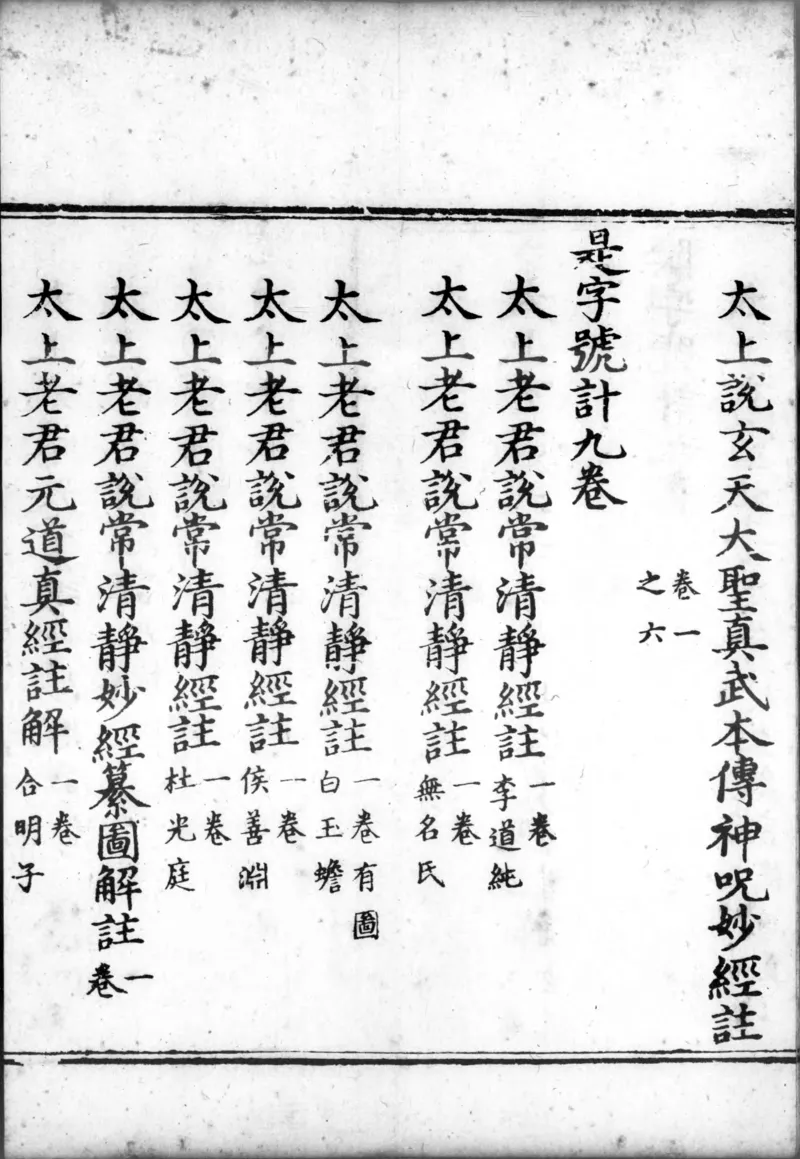 太上說玄天大聖真武本傳神呪妙經註
卷一
之六
是字號計九卷
太上老君說常清靜經註 一卷 李道純
太上老君說常清靜經註 一卷 無名氏
太上老君說常清靜經註 一卷有圖 白玉蟾
太上老君說常清靜經註 一卷 侯善淵
太上老君說常清靜經註 一卷 杜光庭
太上老君說常清靜妙經纂圖解註 一卷
太上老君元道真經註解 一卷 合明子